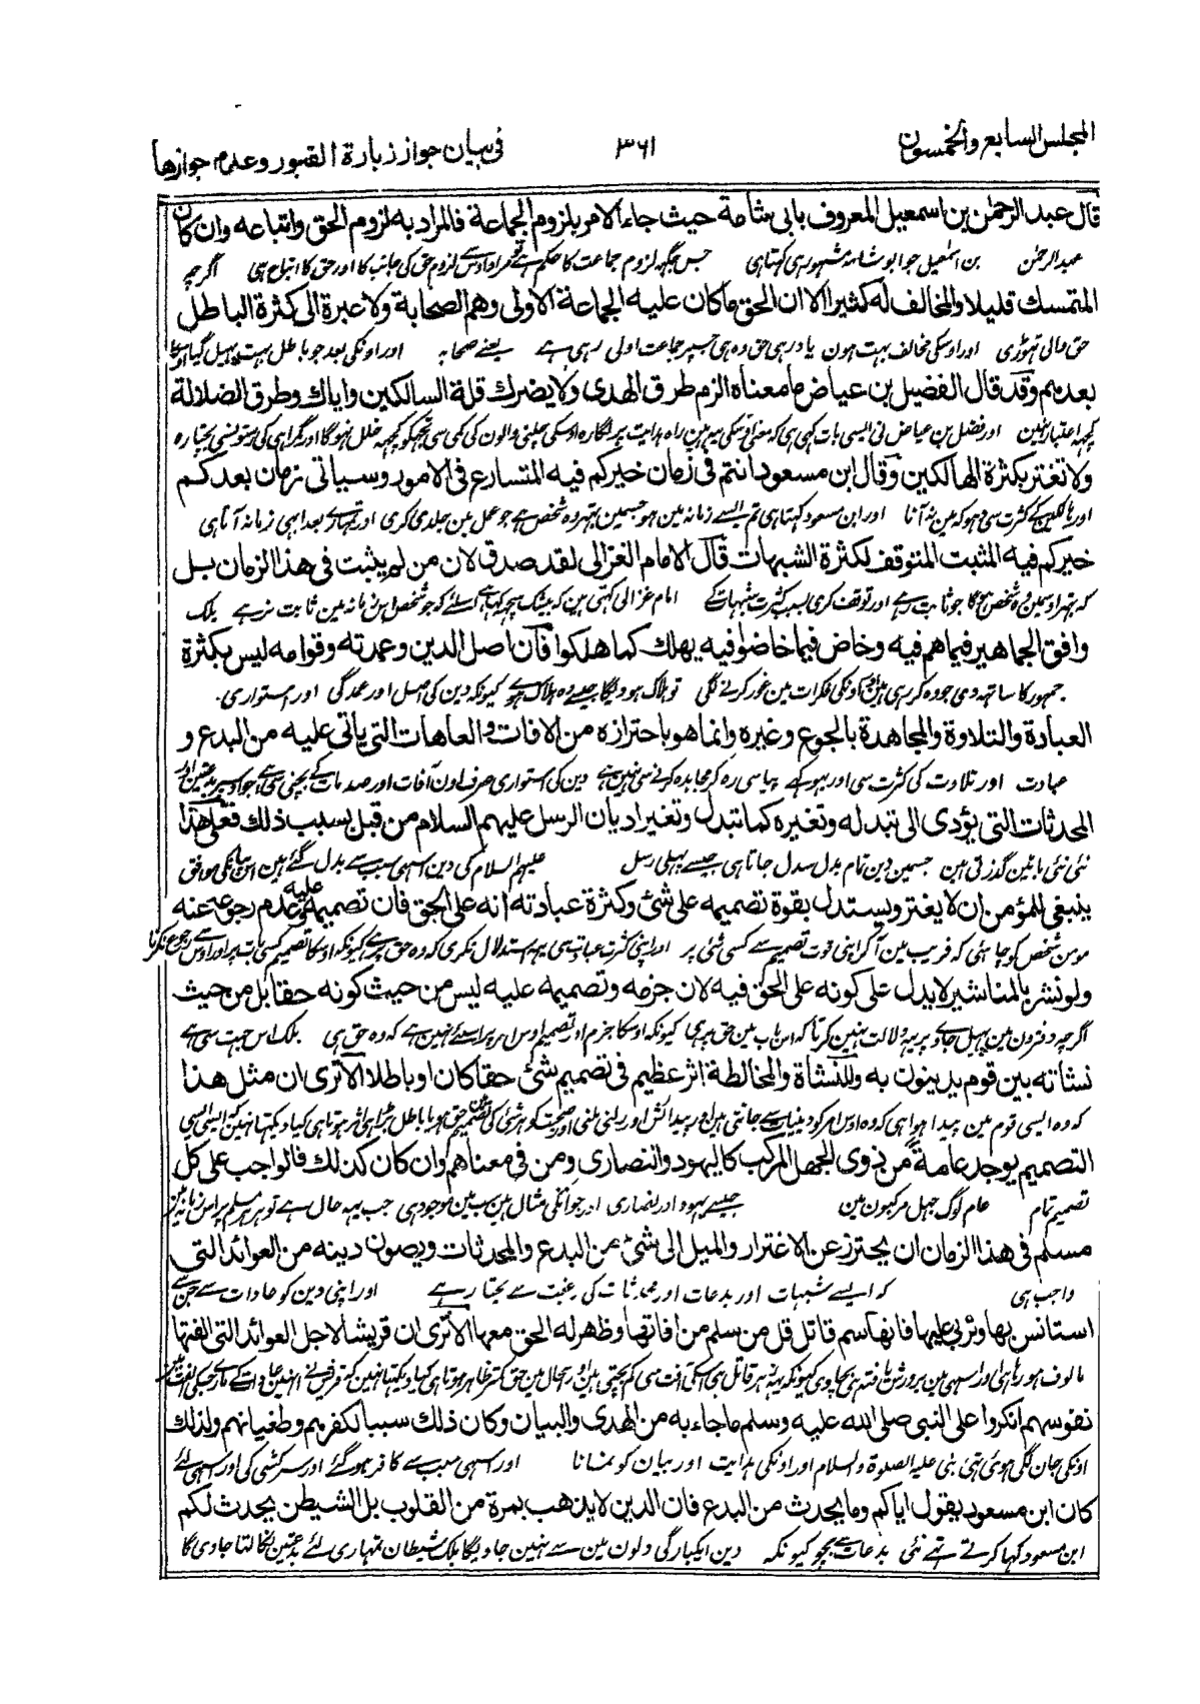 المجلس السابع والخمسون ٣٦١ فى بيان جواز زيارة القبور وعدم جوازها
قال عبد الرحمٰن بن اسمعيل المعروف بابى شامة حيث جاء الامر بلزوم الجماعة فالمراد به لزوم الحق واتباعه وان كان
عبد الرحمٰن بن اسمٰعیل جو ابو شامہ مشہور ہی کہتا ہی جس جگہہ لزوم جماعت کا حکم ہے تو مراد اوس سے لزوم حق کی جانب کا اور حق کا اتباع ہی اگرچہ
المتمسك قليلا والمخالف له كثيرا الا ان الحق ما كان عليه الجماعة الاولى وهم الصحابة ولا عبرة الى كثرة الباطل
حق والی تہوڑی اور اوسکی مخالف بہت ہون یاد رہی حق وہ ہی جسپر جماعت اولی رہی ہے یعنے صحابہ اور اونکی بعد جو باطل بہت پہیل گیا
بعدهم وقد قال الفضيل بن عياض ما معناه الزم طرق الهدى ولا يضرك قلة السالكين واياك وطرق الضلالة
کچہہ اعتبار نہین اور فضیل بن عیاض نی ایسی بات کہی ہی کہ معنی اوسکی یہہ ہین راہ ہدایت پر لگا رہ اوسکی چلنی والون کی کمی سی تجہکو کچہہ خلل نہوگا اور گمراہی کی رستونسی بچتا رہ
ولا تغتر بكثرة الهالكين وقال ابن مسعود انتم فى زمان خيركم فيه المتسارع فى الامور وسياتى زمان بعدكم
اور ہالکین کے کثرت سی دہوکہ مین نہ آنا اور ابن مسعود کہتا ہی تم ایسے زمانہ مین ہو جسمین بہتر وہ شخص ہے جو عمل مین جلدی کری اور تمہارے بعد ابہی زمانہ آتا ہی
خيركم فيه المثبت المتوقف لكثرة الشبهات قال الامام الغزالى لقد صدق لان من لم يثبت فى هذا الزمان بل
کہ بہتر اوسمین وہ شخص ہوگا جو ثابت رہے اور توقف کری بسبب کثرت شبہات کے امام غزالی کہتی ہین کہ بیشک سچ کہا ہے اسلئے کہ جو شخص اس زمانہ مین ثابت نرہے بلکہ
وافق الجماهير فيما هم فيه وخاض فيما خاضوا فيه يهلك كما هلكوا فان اصل الدين وعمدته وقوامه ليس بكثرة
جمہور کا ساتہہ دی جو وہ کر رہی ہین اور اونکی فکرات مین غور کرنے لگی تو ہلاک ہوویگا جیسے وہ ہلاک ہوئے کیونکہ دین کی اصل اور عمدگی اور استواری
العبادة والتلاوة والمجاهدة بالجوع وغيره وانما هو باحترازه من الافات والعاهات التى ياتى عليه من البدع و
عبادت اور تلاوت کی کثرت سی اور بہوکے پیاسی رہ کر مجاہدہ کرنے سی نہین ہے دین کی استواری صرف اون آفات اور صدمات کے بچنی سی ہے جو اوسپر
المحدثات التى يؤدى الى تبدله وتغيره كما تبدل وتغير اديان الرسل عليهم السلام من قبل بسبب ذلك فعلى هذا
نئی نئی باتین گذرتی ہین جسمین دین تمام بدل سدل جاتا ہی جیسے پہلی رسل علیہم السلام کی دین اسہی سبب سے بدل گئے ہین
ينبغى للمؤمن ان لا يغتر ويستدل بقوة تصميمه على شئ وكثرة عبادته انه على الحق فان تصميمه عليه وعدم رجوعه عنه
مومن شخص کو چاہئی کہ فریب مین آکر اپنی قوت تصمیم سے کسی شئی پر اور اپنی کثرت عبادت سی یہہ استدلال نکری کہ وہ حق پر ہے کیونکہ اوسکا تصمیم کسی بات پر اور اوس سے رجوع نکرنا
ولو نشر بالمناشير لا يدل على كونه على الحق فيه لان جزمه وتصميمه عليه ليس من حيث كونه حقا بل من حيث
اگرچہ دفترون مین پہیل جاوے پر یہہ دلالت نہین کرتا کہ اس باب مین حق پر ہی کیونکہ اوسکا جزم اور تصمیم اوس امر پر اسلئے نہین ہے کہ وہ حق ہی بلکہ اس جہت سی ہے
نشاته بين قوم يدينون به وللنشاة والمخالطة اثر عظيم فى تصميم شئ حقا كان او باطلا الا ترى ان مثل هذا
کہ وہ ایسی قوم مین پیدا ہوا ہی کہ وہ اوس امر کو دینیات سے جانتی ہین اور پیدائش اور رلنی ملنی اور صحبت کو ہر شئ کی تصمیم حق ہو یا باطل بڑا ہی اثر ہوتا ہی کیا دیکہتا نہین کہ ایسی
التصميم يوجد عامة من ذوى الجهل المركب كاليهود والنصارى ومن فى معناهم وان كان كذلك فالواجب على كل
تصمیم تمام عام لوگ جہل مرکبون مین جیسے یہود اور نصاری اور جو انکی مثال ہین سب مین موجود ہی جب یہہ حال ہے تو ہر مسلم پر
مسلم فى هذا الزمان ان يحترز عن الاغترار والميل الى شئ من البدع والمحدثات ويصون دينه من العوائد التى
واجب ہی کہ ایسے شبہات اور بدعات اور محدثات کی رغبت سے بچتا رہے اور اپنی دین کو عادات سے جن سے
استانس بها وتربى عليها فانها سم قاتل قل من سلم من افاتها وظهر له الحق معها الا ترى ان قريشا لاجل العوائد التى الفتها
مالوف ہو رہا ہی اور اسہی مین پرورش یافتہ ہی بچاوی کیونکہ یہہ زہر قاتل ہی اسکی آفت سی کم بچتی ہین اور اس حال مین حق کمتر ظاہر ہوتا ہی کیا دیکہتا نہین کہ قریش نے
نفوسهم انكروا على النبى صلى الله عليه وسلم ما جاء به من الهدى والبيان وكان ذلك سببا لكفرهم وطغيانهم ولذلك
اونکی جان لگی ہوئی تہی نبی علیہ الصلوۃ والسلام اور اونکی ہدایت اور بیان کو نمانا اور اسہی سبب سے کافر ہو گئے اور سرکشی کی اور اسہی لئے
كان ابن مسعود يقول اياكم وما يحدث من البدع فان الدين لا يذهب بمرة من القلوب بل الشيطن يحدث لكم
ابن مسعود کہا کرتے تہے نئی بدعات سے بچو کیونکہ دین ایکبارگی دلون مین سے نہین جاویگا بلکہ شیطان تمہاری لئے بدعتین نکالتا جاوی گا